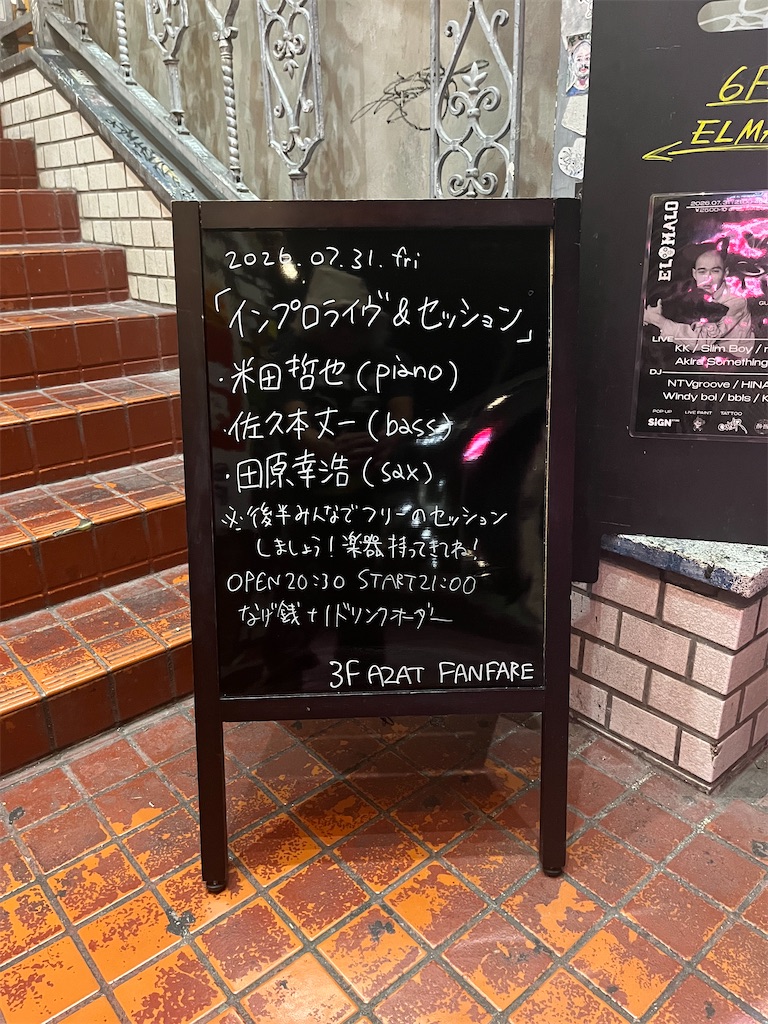 2026.07.31.fri
「インプロライヴ&セッション」
・米田哲也(piano)
・佐久本丈一(bass)
・田原幸浩(sax)
※後半みんなでフリーのセッション
しましょう!楽器持ってきてね!
OPEN20:30 START21:00
なげ銭+1ドリンクオーダー
3F AZAT FANFARE
6F
ELMA
ELOMALO
2026.07.31
LIVE
KK / Slim Boy /
Akira Something
DJ
NTVgroove / HINA
Windy boi / bbls / K
POP-UP
LIVE PAINT
TATTOO
SIGN